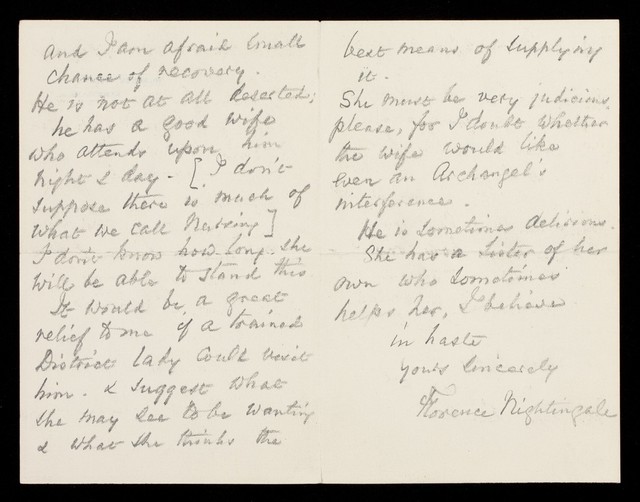 and I am afraid small
chance of recovery.
He is not at all deserted;
he has a good wife
who attends upon him
night & day - [I don't
suppose there is much of
what we call Nursing]
I don't know how long she
will be able to stand this
It would be a great
relief to me if a trained
District lady could visit
him. & suggest what
she may see to be wanting
& what she thinks the
best means of supplying
it.
She must be very judicious,
please, for I doubt whether
the wife would like
even an Archangel's
interference.
He is sometimes delirious.
She has a sister of her
own who sometimes
helps her, I believe
in haste
yours sincerely
Florence Nightingale